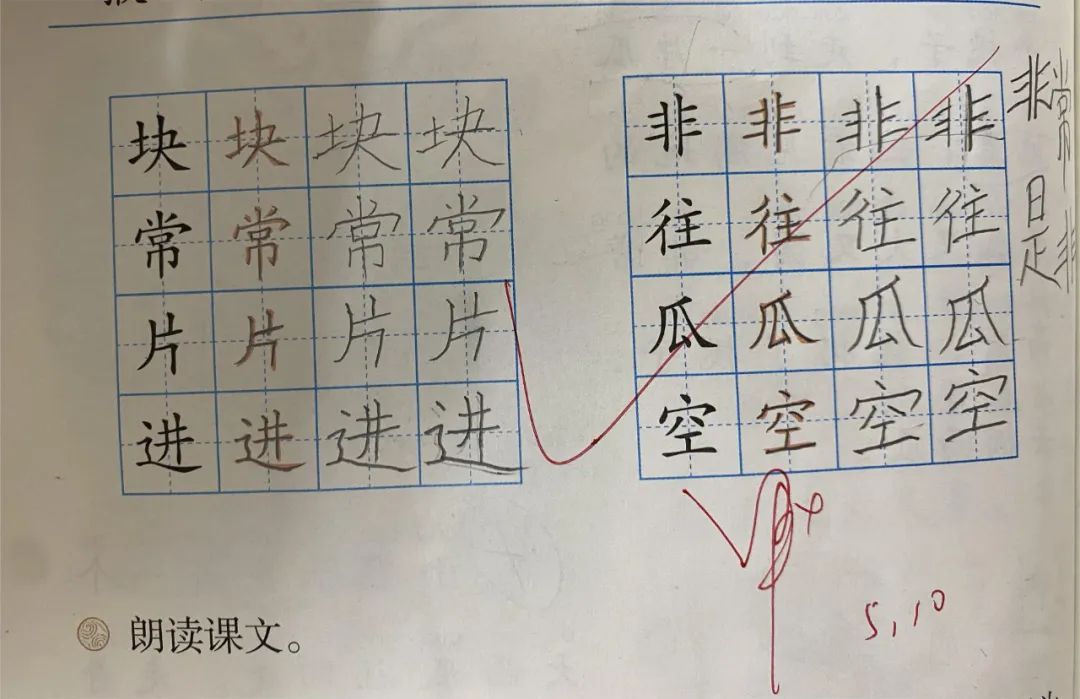 块 块 块 块
常 常 常 常
片 片 片 片
进 进 进 进
非 非 非 非
往 往 往 往
瓜 瓜 瓜 瓜
空 空 空 空
非常
是非
5,10
朗读课文。